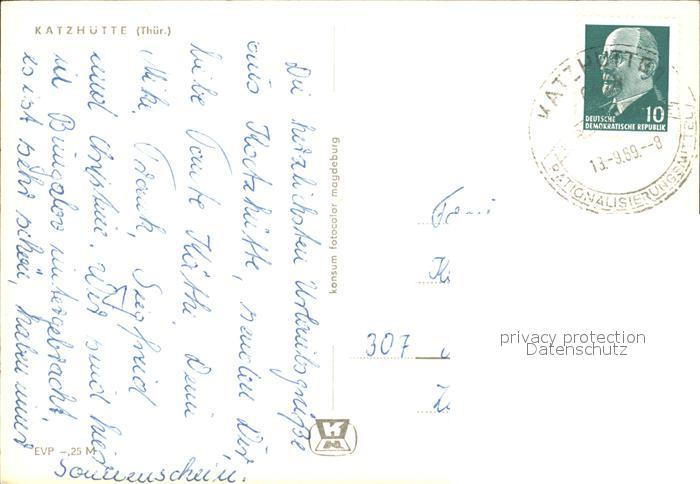 KATZHÜTTE (Thür.)
Die herzlichsten Urlaubsgrüße
aus Katzhütte, senden Dir
liebe Tante Käthi, Deine
Mike, Frank, Siegfried
und Christine. Wir sind hier
in Bungalow untergebracht.
es ist sehr schön, haben nur
Sonnenschein.
EVP -,25 M
konsum fotocolor magdeburg
DEUTSCHE
DEMOKRATISCHE REPUBLIK
10
KATZHÜTTE
13.-9.69.--8
RATIONALISIERUNGSMITTEL
Fami
307
privacy protection
Datenschutz